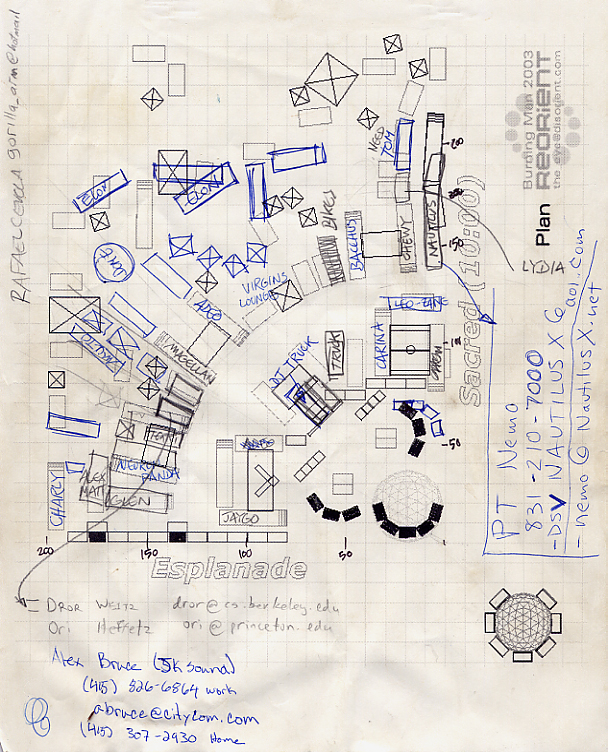 RAFAEL CEVILA gorilla_arm@hotmail
Burning Man 2003
REORIENT
the eyedisorient.com
Plan
NEED
TOM
200
ELON
ELON
BIKES
BACCHUS
CHEWY
NAUTILUS
150
LYDIA
Sacred (10:00)
DOME
VIRGINS
LOUNGE
MAGELLAN
LEO-ZANE
CARINA
TRUCK
DJ TRUCK
50
CHARLY
ALEX
MATT
GLEN
PANDA
JAYGO
200
150
100
50
Esplanade
PT Nemo
831-210-7000
-DSV NAUTILUS X @ aol.com
- nemo @ NautilusX.net
DROR WEITZ dror@cs.berkeley.edu
Ori Heffetz ori@princeton.edu
Alex Bruce (5k sound)
(415) 826-6864 work
abruce@citycom.com
(415) 307-2930 Home